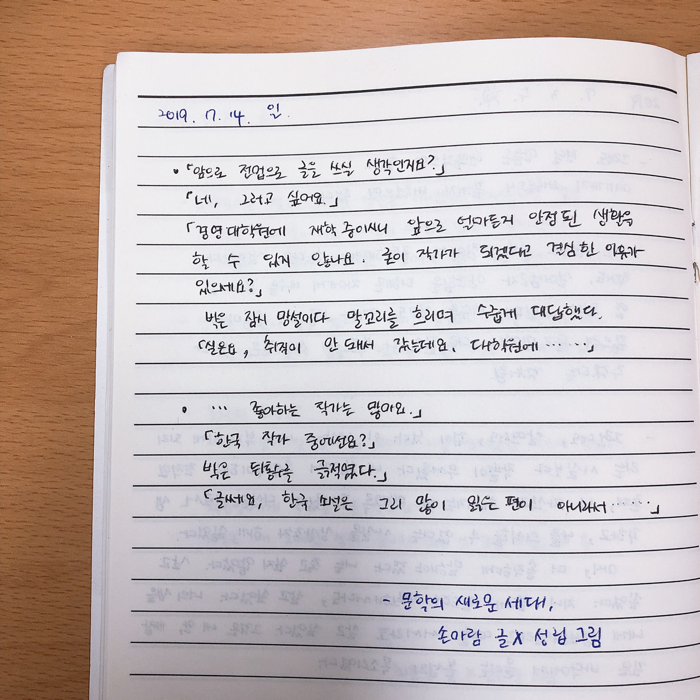 2019. 7. 14. 일.
• 「앞으로 전업으로 글을 쓰실 생각인지요?」
「네, 그러고 싶어요.」
「경영대학원에 재학 중이시니 앞으로 얼마든지 안정된 생활을
할 수 있지 않나요. 굳이 작가가 되겠다고 결심한 이유가
있으세요?」
박은 잠시 망설이다 말꼬리를 흐리며 수줍게 대답했다.
「실은요, 취직이 안 돼서 갔는데요. 대학원에……」
• … 좋아하는 작가는 많아요.」
「한국 작가 중에선요?」
박은 뒤통수를 긁적였다.」
「글쎄요, 한국 소설은 그리 많이 읽은 편이 아니라서……」
- 문학의 새로운 세대,
손아람 글 X 성립 그림